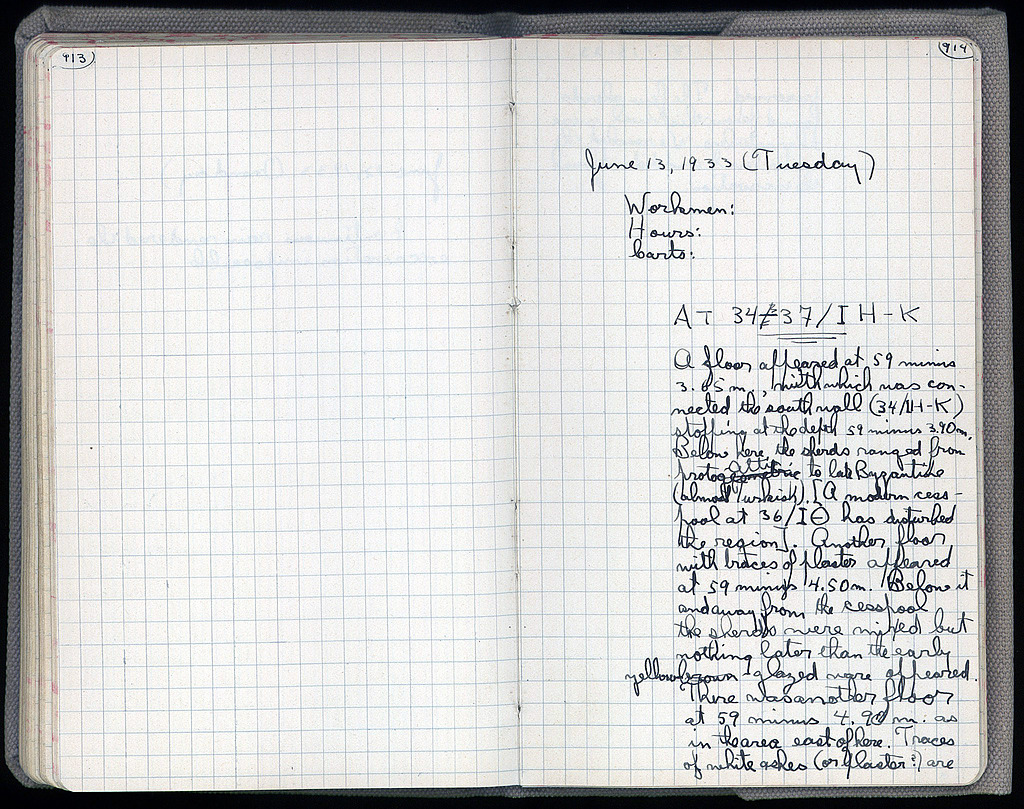 913
914
June 13, 1933 (Tuesday)
Workmen:
Hours:
Carts:
AT 34-37/IH-K
A floor appeared at 59 minus
3.65 m., with which was con-
nected the south wall (34/IH-K)
stopping at the depth 59 minus 3.90 m.
Below here the sherds ranged from
protoattic to late Byzantine
(almost Turkish). [A modern cess-
pool at 36/IΘ has disturbed
the region]. Another floor
with traces of plaster appeared
at 59 minus 4.50 m. Below it
and away from the cesspool
the sherds were mixed but
nothing later than the early
yellow brown glazed ware appeared.
There was another floor
at 59 minus 4.90 m. as
in the area east of here. Traces
of white ashes (or plaster?) are